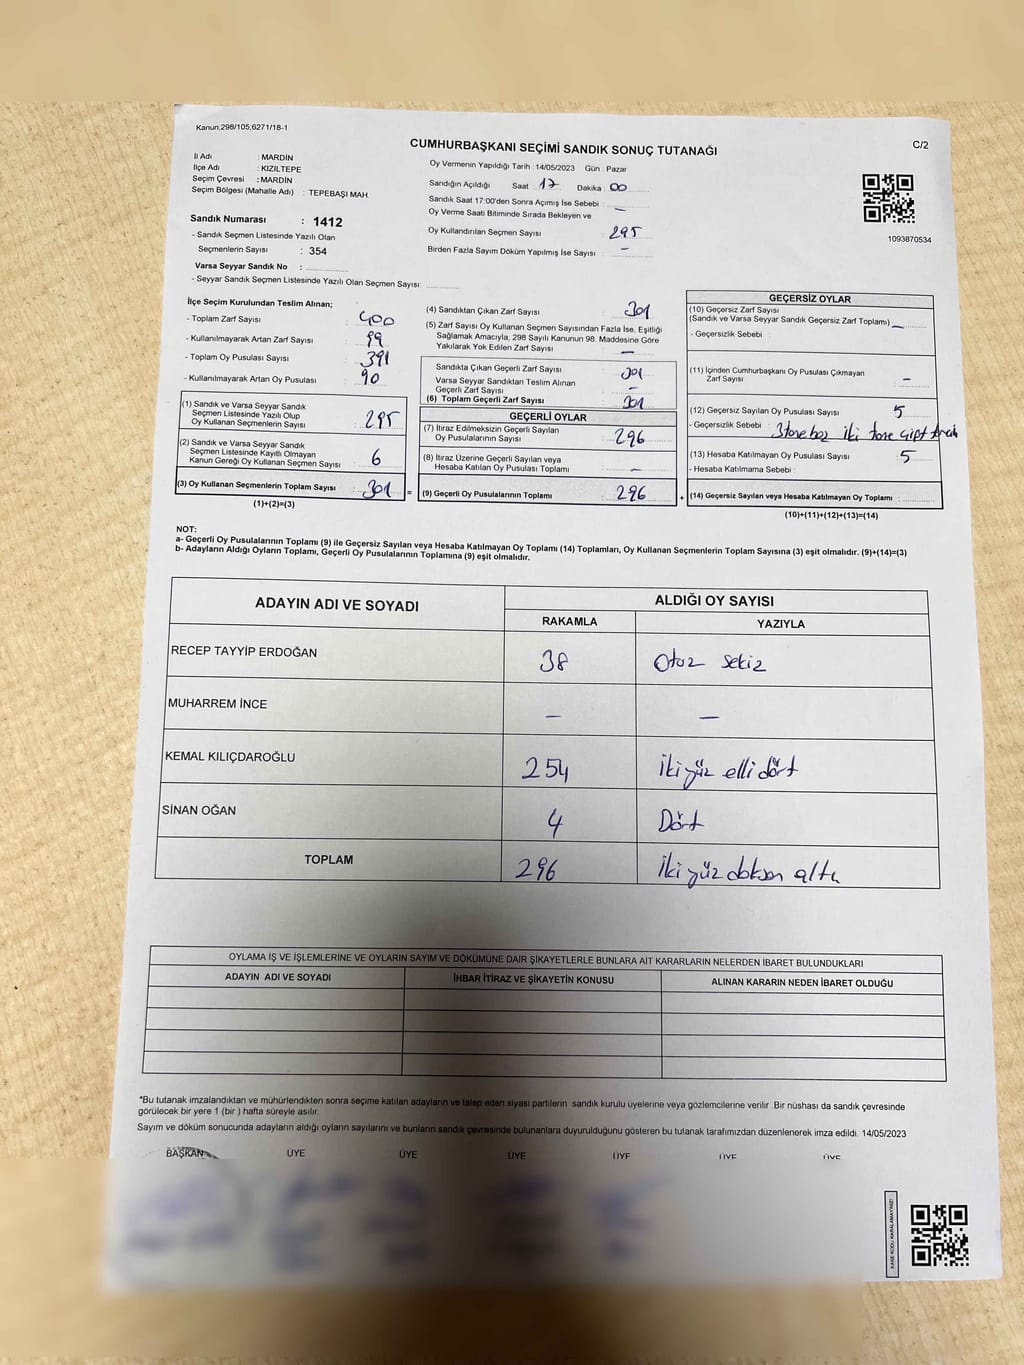 Kanun:298/105;6271/18-1
C/2
CUMHURBAŞKANI SEÇİMİ SANDIK SONUÇ TUTANAĞI
İl Adı : MARDİN
İlçe Adı : KIZILTEPE
Seçim Çevresi : MARDİN
Seçim Bölgesi (Mahalle Adı) : TEPEBAŞI MAH.
Sandık Numarası : 1412
- Sandık Seçmen Listesinde Yazılı Olan
Seçmenlerin Sayısı : 354
Varsa Seyyar Sandık No :
- Seyyar Sandık Seçmen Listesinde Yazılı Olan Seçmen Sayısı:
Oy Vermenin Yapıldığı Tarih : 14/05/2023 Gün : Pazar
Sandığın Açıldığı Saat : 17 Dakika : 00
Sandık Saat 17:00'den Sonra Açılmış İse Sebebi :
Oy Verme Saati Bitiminde Sırada Bekleyen ve –
Oy Kullandırılan Seçmen Sayısı : 295
Birden Fazla Sayım Döküm Yapılmış İse Sayısı : –
1093870534
İlçe Seçim Kurulundan Teslim Alınan;
- Toplam Zarf Sayısı : 400
- Kullanılmayarak Artan Zarf Sayısı : 99
- Toplam Oy Pusulası Sayısı : 391
- Kullanılmayarak Artan Oy Pusulası : 90
(1) Sandık ve Varsa Seyyar Sandık
Seçmen Listesinde Yazılı Olup
Oy Kullanan Seçmenlerin Sayısı : 295
(2) Sandık ve Varsa Seyyar Sandık
Seçmen Listesinde Kayıtlı Olmayan
Kanun Gereği Oy Kullanan Seçmen Sayısı : 6
(3) Oy Kullanan Seçmenlerin Toplam Sayısı : 301 =
(1)+(2)=(3)
(4) Sandıktan Çıkan Zarf Sayısı : 301
(5) Zarf Sayısı Oy Kullanan Seçmen Sayısından Fazla İse, Eşitliği
Sağlamak Amacıyla, 298 Sayılı Kanunun 98. Maddesine Göre
Yakılarak Yok Edilen Zarf Sayısı : –
Sandıkta Çıkan Geçerli Zarf Sayısı : 301
Varsa Seyyar Sandıktan Teslim Alınan
Geçerli Zarf Sayısı : –
(6) Toplam Geçerli Zarf Sayısı : 301
GEÇERLİ OYLAR
(7) İtiraz Edilmeksizin Geçerli Sayılan
Oy Pusulalarının Sayısı : 296
(8) İtiraz Üzerine Geçerli Sayılan veya
Hesaba Katılan Oy Pusulası Toplamı : –
(9) Geçerli Oy Pusulalarının Toplamı : 296 +
GEÇERSİZ OYLAR
(10) Geçersiz Zarf Sayısı
(Sandık ve Varsa Seyyar Sandık Geçersiz Zarf Toplamı) : –
- Geçersizlik Sebebi :
(11) İçinden Cumhurbaşkanı Oy Pusulası Çıkmayan
Zarf Sayısı : –
(12) Geçersiz Sayılan Oy Pusulası Sayısı : 5
- Geçersizlik Sebebi : 3 tane boş iki tane çift
(13) Hesaba Katılmayan Oy Pusulası Sayısı : 5
- Hesaba Katılmama Sebebi :
(14) Geçersiz Sayılan veya Hesaba Katılmayan Oy Toplamı :
(10)+(11)+(12)+(13)=(14)
NOT:
a- Geçerli Oy Pusulalarının Toplamı (9) ile Geçersiz Sayılan veya Hesaba Katılmayan Oy Toplamı (14) Toplamları, Oy Kullanan Seçmenlerin Toplam Sayısına (3) eşit olmalıdır. (9)+(14)=(3)
b- Adayların Aldığı Oyların Toplamı, Geçerli Oy Pusulalarının Toplamına (9) eşit olmalıdır.
ADAYIN ADI VE SOYADI ALDIĞI OY SAYISI
RAKAMLA YAZIYLA
RECEP TAYYİP ERDOĞAN 38 Otuz sekiz
MUHARREM İNCE – –
KEMAL KILIÇDAROĞLU 254 İki yüz elli dört
SİNAN OĞAN 4 Dört
TOPLAM 296 İki yüz doksan altı
OYLAMA İŞ VE İŞLEMLERİNE VE OYLARIN SAYIM VE DÖKÜMÜNE DAİR ŞİKAYETLERLE BUNLARA AİT KARARLARIN NELERDEN İBARET BULUNDUKLARI
ADAYIN ADI VE SOYADI İHBAR İTİRAZ VE ŞİKAYETİN KONUSU ALINAN KARARIN NEDEN İBARET OLDUĞU
*Bu tutanak imzalandıktan ve mühürlendikten sonra seçime katılan adayların ve talep eden siyasi partilerin sandık kurulu üyelerine veya gözlemcilerine verilir .Bir nüshası da sandık çevresinde
görülecek bir yere 1 (bir ) hafta süreyle asılır.
Sayım ve döküm sonucunda adayların aldığı oyların sayılarını ve bunların sandık çevresinde bulunanlara duyurulduğunu gösteren bu tutanak tarafımızdan düzenlenerek imza edildi. 14/05/2023
BAŞKAN ÜYE ÜYE ÜYE ÜYE ÜYE ÜYE
KARE KODU KARALAMAYINIZ!